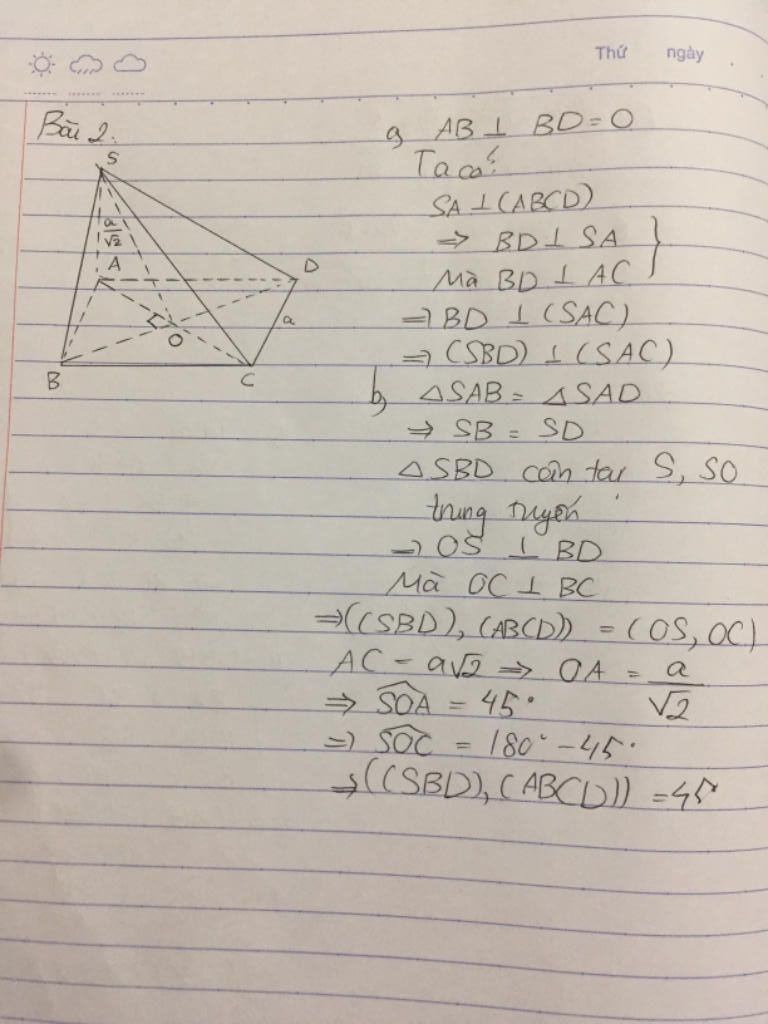 Thứ ngày
Bài 2:
S
a/√2
A
D
a
O
B
C
a, AB ⊥ BD = O
Ta có:
SA ⊥ (ABCD)
⇒ BD ⊥ SA }
Mà BD ⊥ AC
⇒ BD ⊥ (SAC)
⇒ (SBD) ⊥ (SAC)
b, △SAB = △SAD
⇒ SB = SD
△SBD cân tại S, SO
trung tuyến
⇒ OS ⊥ BD
Mà OC ⊥ BC
⇒ ((SBD), (ABCD)) = (OS, OC)
AC = a√2 ⇒ OA = a/√2
⇒ \widehat{SOA} = 45°
⇒ \widehat{SOC} = 180° - 45°
⇒ ((SBD), (ABCD)) = 45°